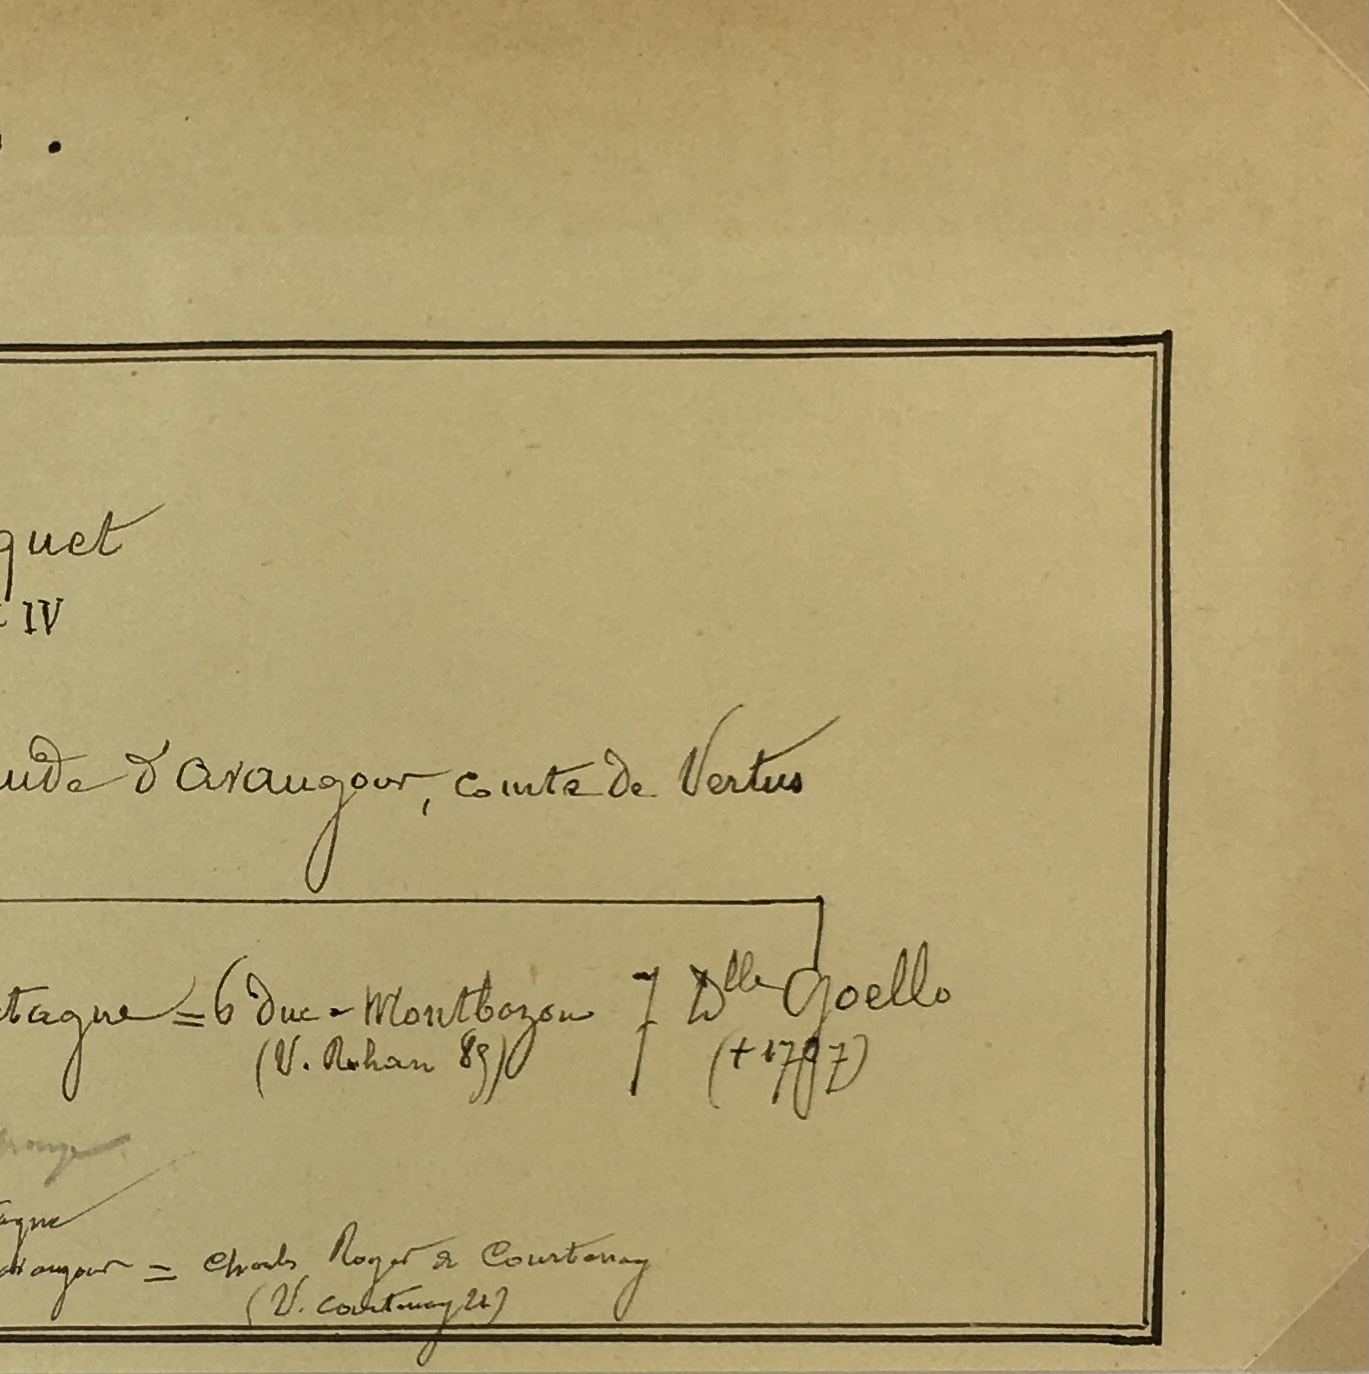 quet
IV
ude d'Avaugour, comte de Vertus
tagne = 6 duc-Montbazon 7 Dlle Goello
(V. Rohan 89) (+ 1707)
agne
avaugour = Charles Roger de Courtenay
(V. Courtenay 21)